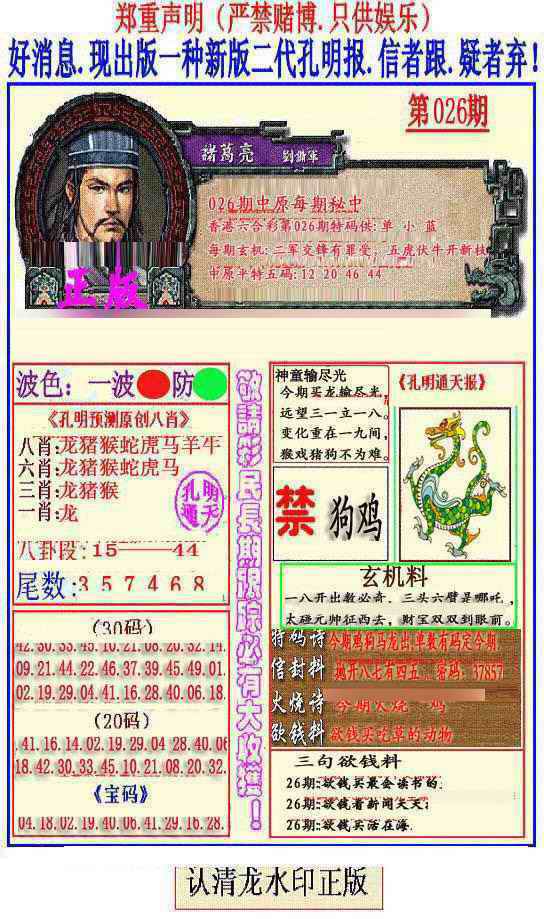 郑重声明（严禁赌博.只供娱乐）
好消息.现出版一种新版二代孔明报.信者跟.疑者弃!
第026期
諸葛亮
026期中原每期秘中
香港六合彩第026期特码供:单 小 蓝
每期玄机:二军交锋有罪受、五虎伏牛开新枝
中原平特五码:12 20 46 44
正版
波色：一波 防
《孔明预测原创八肖》
八肖:龙猪猴蛇虎马羊牛
六肖:龙猪猴蛇虎马
三肖:龙猪猴
一肖:龙
孔明
通天
八卦段:15——44
尾数:3 5 7 4 6 8
(30码)
42.30.33.45.10.21.08.20.32.14
09.21.44.22.46.37.39.45.49.01
02.19.29.04.41.16.28.40.06.18
(20码)
.41.16.14.02.19.29.04 28.40.06
18.42.30.33.45.10.21.08.20.32
《宝码》
04.18.02.19.40.06.41.29.16.28.
敬請彩民長期跟踪必有大收獲！
神童输尽光
今期买龙输尽光，
远望三一立一八。
变化重在一九间，
猴戏猪狗不为难。
《孔明通天报》
禁 狗鸡
玄机料
一八开出数必奇、三头六臂是哪吒，
太碰元帅征西去，财宝双双到眼前。
特码诗 今期鸡狗马龙出.单数有码定今期
信封料 抛开八七有四五、密码：37857
火烧诗 今期火烧 鸡
欲钱料 欲钱买吃草的动物
三句欲钱料
26期:欲钱买最会读书的.
26期:欲钱看新闻天天;
26期:欲钱买活在海.
认清龙水印正版